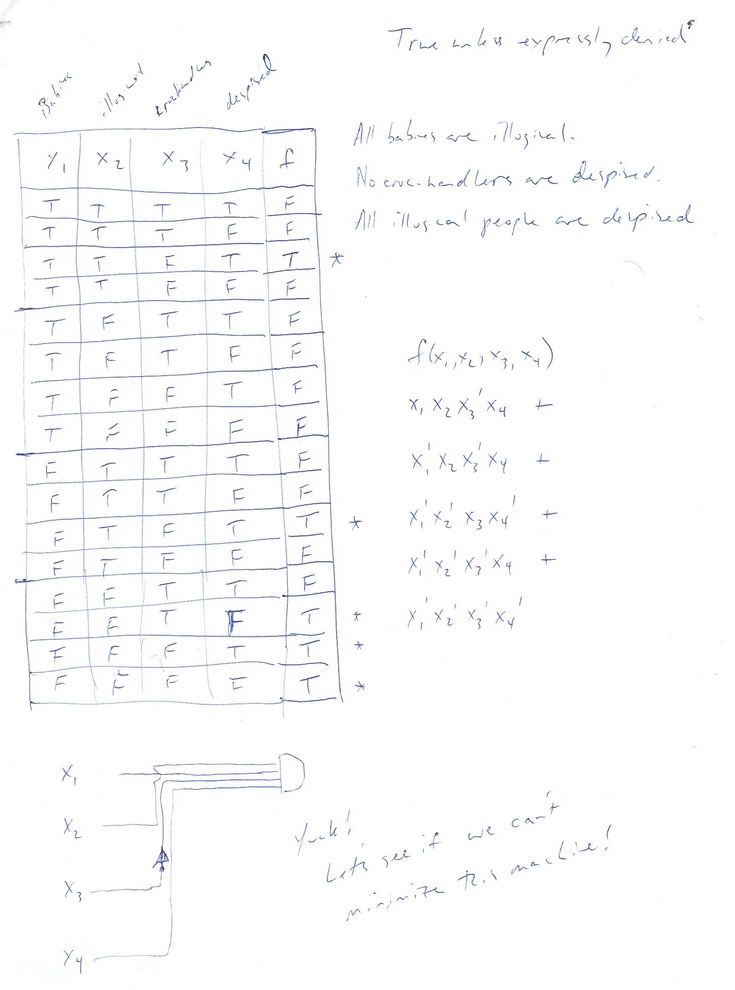 True unless expressly denied
Babies illogical crochandlers despised
Y1 X2 X3 X4 f
T T T T F
T T T F F
T T F T T *
T T F F F
T F T T F
T F T F F
T F F T F
T F F F F
F T T T F
F T T F F
F T F T T *
F T F F F
F F T T F
F F T F T *
F F F T T *
F F F F T *
All babies are illogical.
No croc-handlers are despised.
All illogical people are despised
f(x1, x2, x3, x4)
x1 x2 x3' x4 +
x1' x2 x3' x4 +
x1' x2' x3 x4' +
x1' x2' x3' x4 +
x1' x2' x3' x4'
X1
X2
X3
X4
Yuck!
Let's see if we can't
minimize this machine!